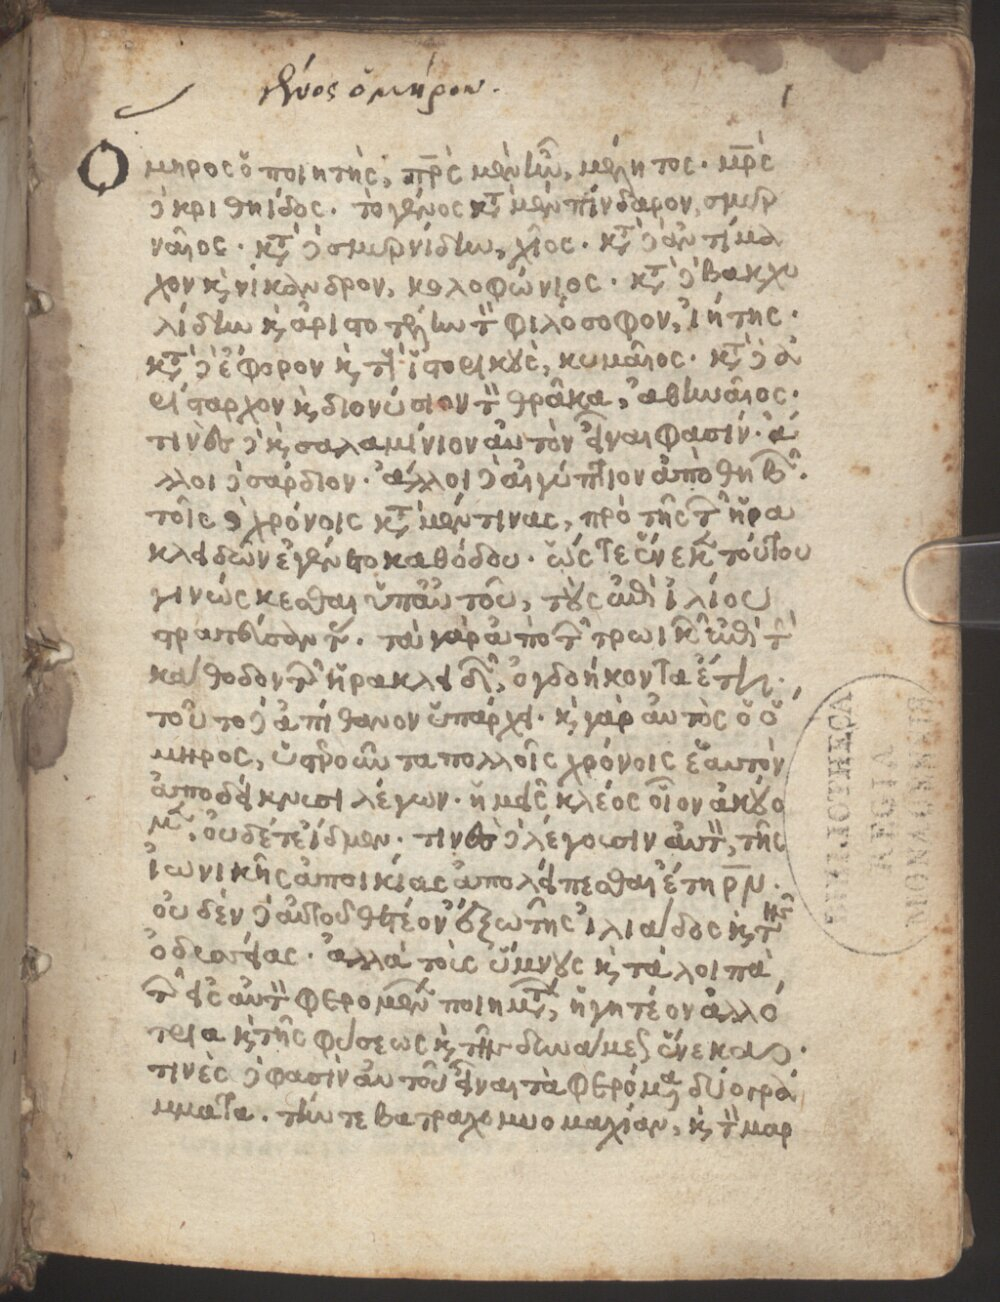 γένος ὁμήρου.
1
Ὁ
μηρος ὁ ποιητὴς, π̅ρ̅ς μὲν ἦν, μέλητος. μ̅ρ̅ς
δὲ κριθηίδος. τὸ γένος κτ̀ μὲν πίνδαρον, σμυρ
ναῖος. κτ̀ δὲ σμυρνίδην, χῖος. κτ̀ δὲ ἀντίμα
χον κ̀ νίκανδρον, κολοφώνιος. κτ̀ δὲ βακχυ
λίδην κ̀ ἀριστοτέλην τὸν φιλόσοφον, ἰήτης.
κτ̀ δὲ ἔφορον κ̀ τοὺς ἱστορικοὺς, κυμαῖος. κτ̀ δὲ ἀ
ρίσταρχον κ̀ διονύσιον τὸν θρᾶκα, ἀθηναῖος.
τινὲς δὲ κ̀ σαλαμίνιον αὐτὸν εἶναι φασίν. ἄ
λλοι δὲ σάρδιον. ἄλλοι δὲ αἰγύπτιον ἀπὸ θηβῶν.
τοῖς δὲ χρόνοις κτ̀ μέν τινας, πρὸ τῆς τῶν ἡρα
κλειδῶν ἐγένετο καθόδου. ὥς τε ἕνεκα τούτου
γινώσκεσθαι ὑπ' αὐτοῦ, τοὺς ἐπὶ ἰλίου
στρατεύσοντας. τὰ γὰρ ἀπὸ τῶν τρωικῶν ἐπὶ τὴν
κάθοδον τῶν ἡρακλειδῶν, ὀγδοήκοντα ἔτη.
τοῦτο δὲ ἀπίθανον ὑπάρχει. κ̀ γὰρ αὐτὸς ὁ ὅ
μηρος, ὑστεροῦντα πολλοῖς χρόνοις ἑαυτὸν
ἀποδείκνυσι λέγων. ἡμεῖς κλέος οἶον ἀκούο
μεν, οὐδέ τε ἴδμεν. τινὲς δὲ λέγουσιν αὐτὸν, τῆς
ἰωνικῆς ἀποικίας ἀπολείπεσθαι ἔτη ρ̅ν̅.
οὐδὲν δὲ αὐτοῦ θετέον ἔξω τῆς ἰλιάδος κ̀ τῆς
ὀδυσσείας. ἀλλὰ τοὺς ὕμνους κ̀ τὰ λοιπὰ
τῶν εἰς αὐτὸν φερομένων ποιημάτων, ἡγητέον ἀλλό
τρια κ̀ τῆς φύσεως κ̀ τῆς δυνάμεως ἕνεκα.
τινὲς δὲ φασὶν αὐτοῦ εἶναι τὰ φερόμενα δύο γρά
μματα. τήν τε βατραχομυομαχίαν, κ̀ τὸν μαρ
BIBLIOTHECA
REGIA
MONACENSIS